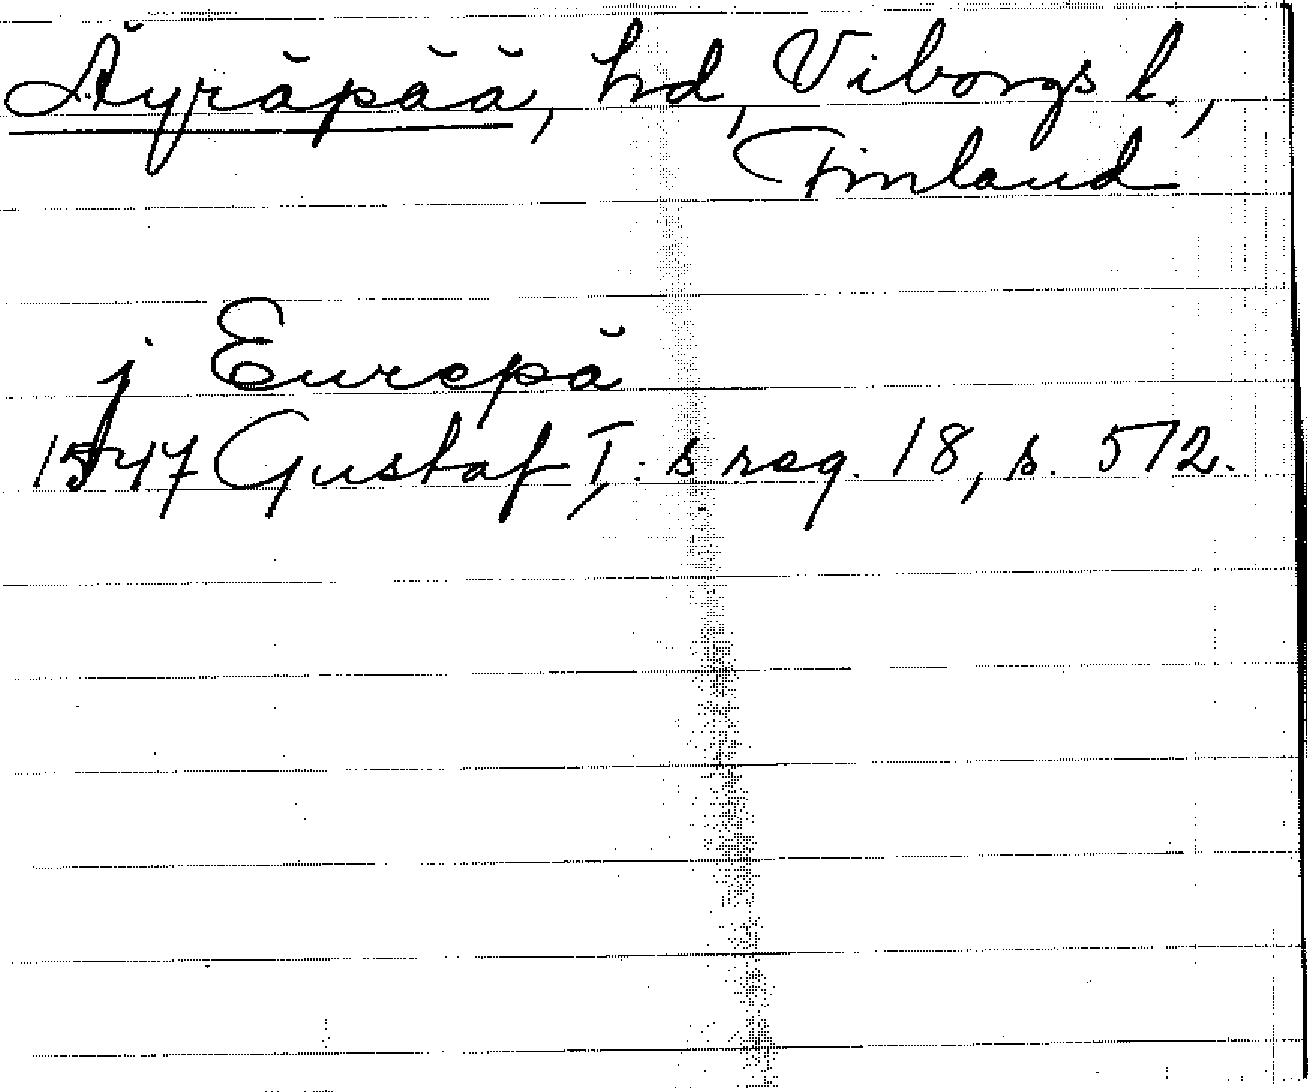 Äyräpää, hd, Viborgs l.,
Finland
j Eurepä
1547 Gustaf I:s reg. 18, s. 572.